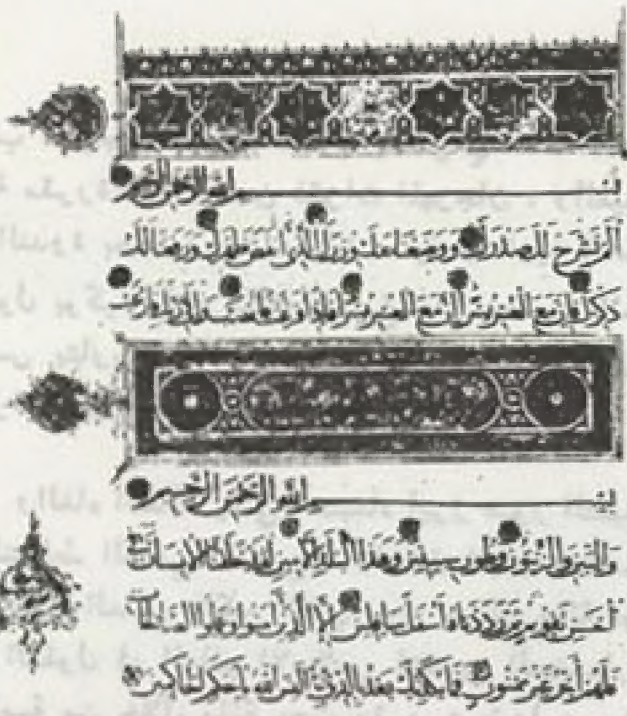 بسم الله الرحمن الرحيم
ألم نشرح لك صدرك ووضعنا عنك وزرك الذي أنقض ظهرك ورفعنا لك
ذكرك فإن مع العسر يسرا إن مع العسر يسرا فإذا فرغت فانصب وإلى ربك فارغب
بسم الله الرحمن الرحيم
والتين والزيتون وطور سينين وهذا البلد الأمين لقد خلقنا الإنسان
في أحسن تقويم ثم رددناه أسفل سافلين إلا الذين آمنوا وعملوا الصالحات
فلهم أجر غير ممنون فما يكذبك بعد بالدين أليس الله بأحكم الحاكمين